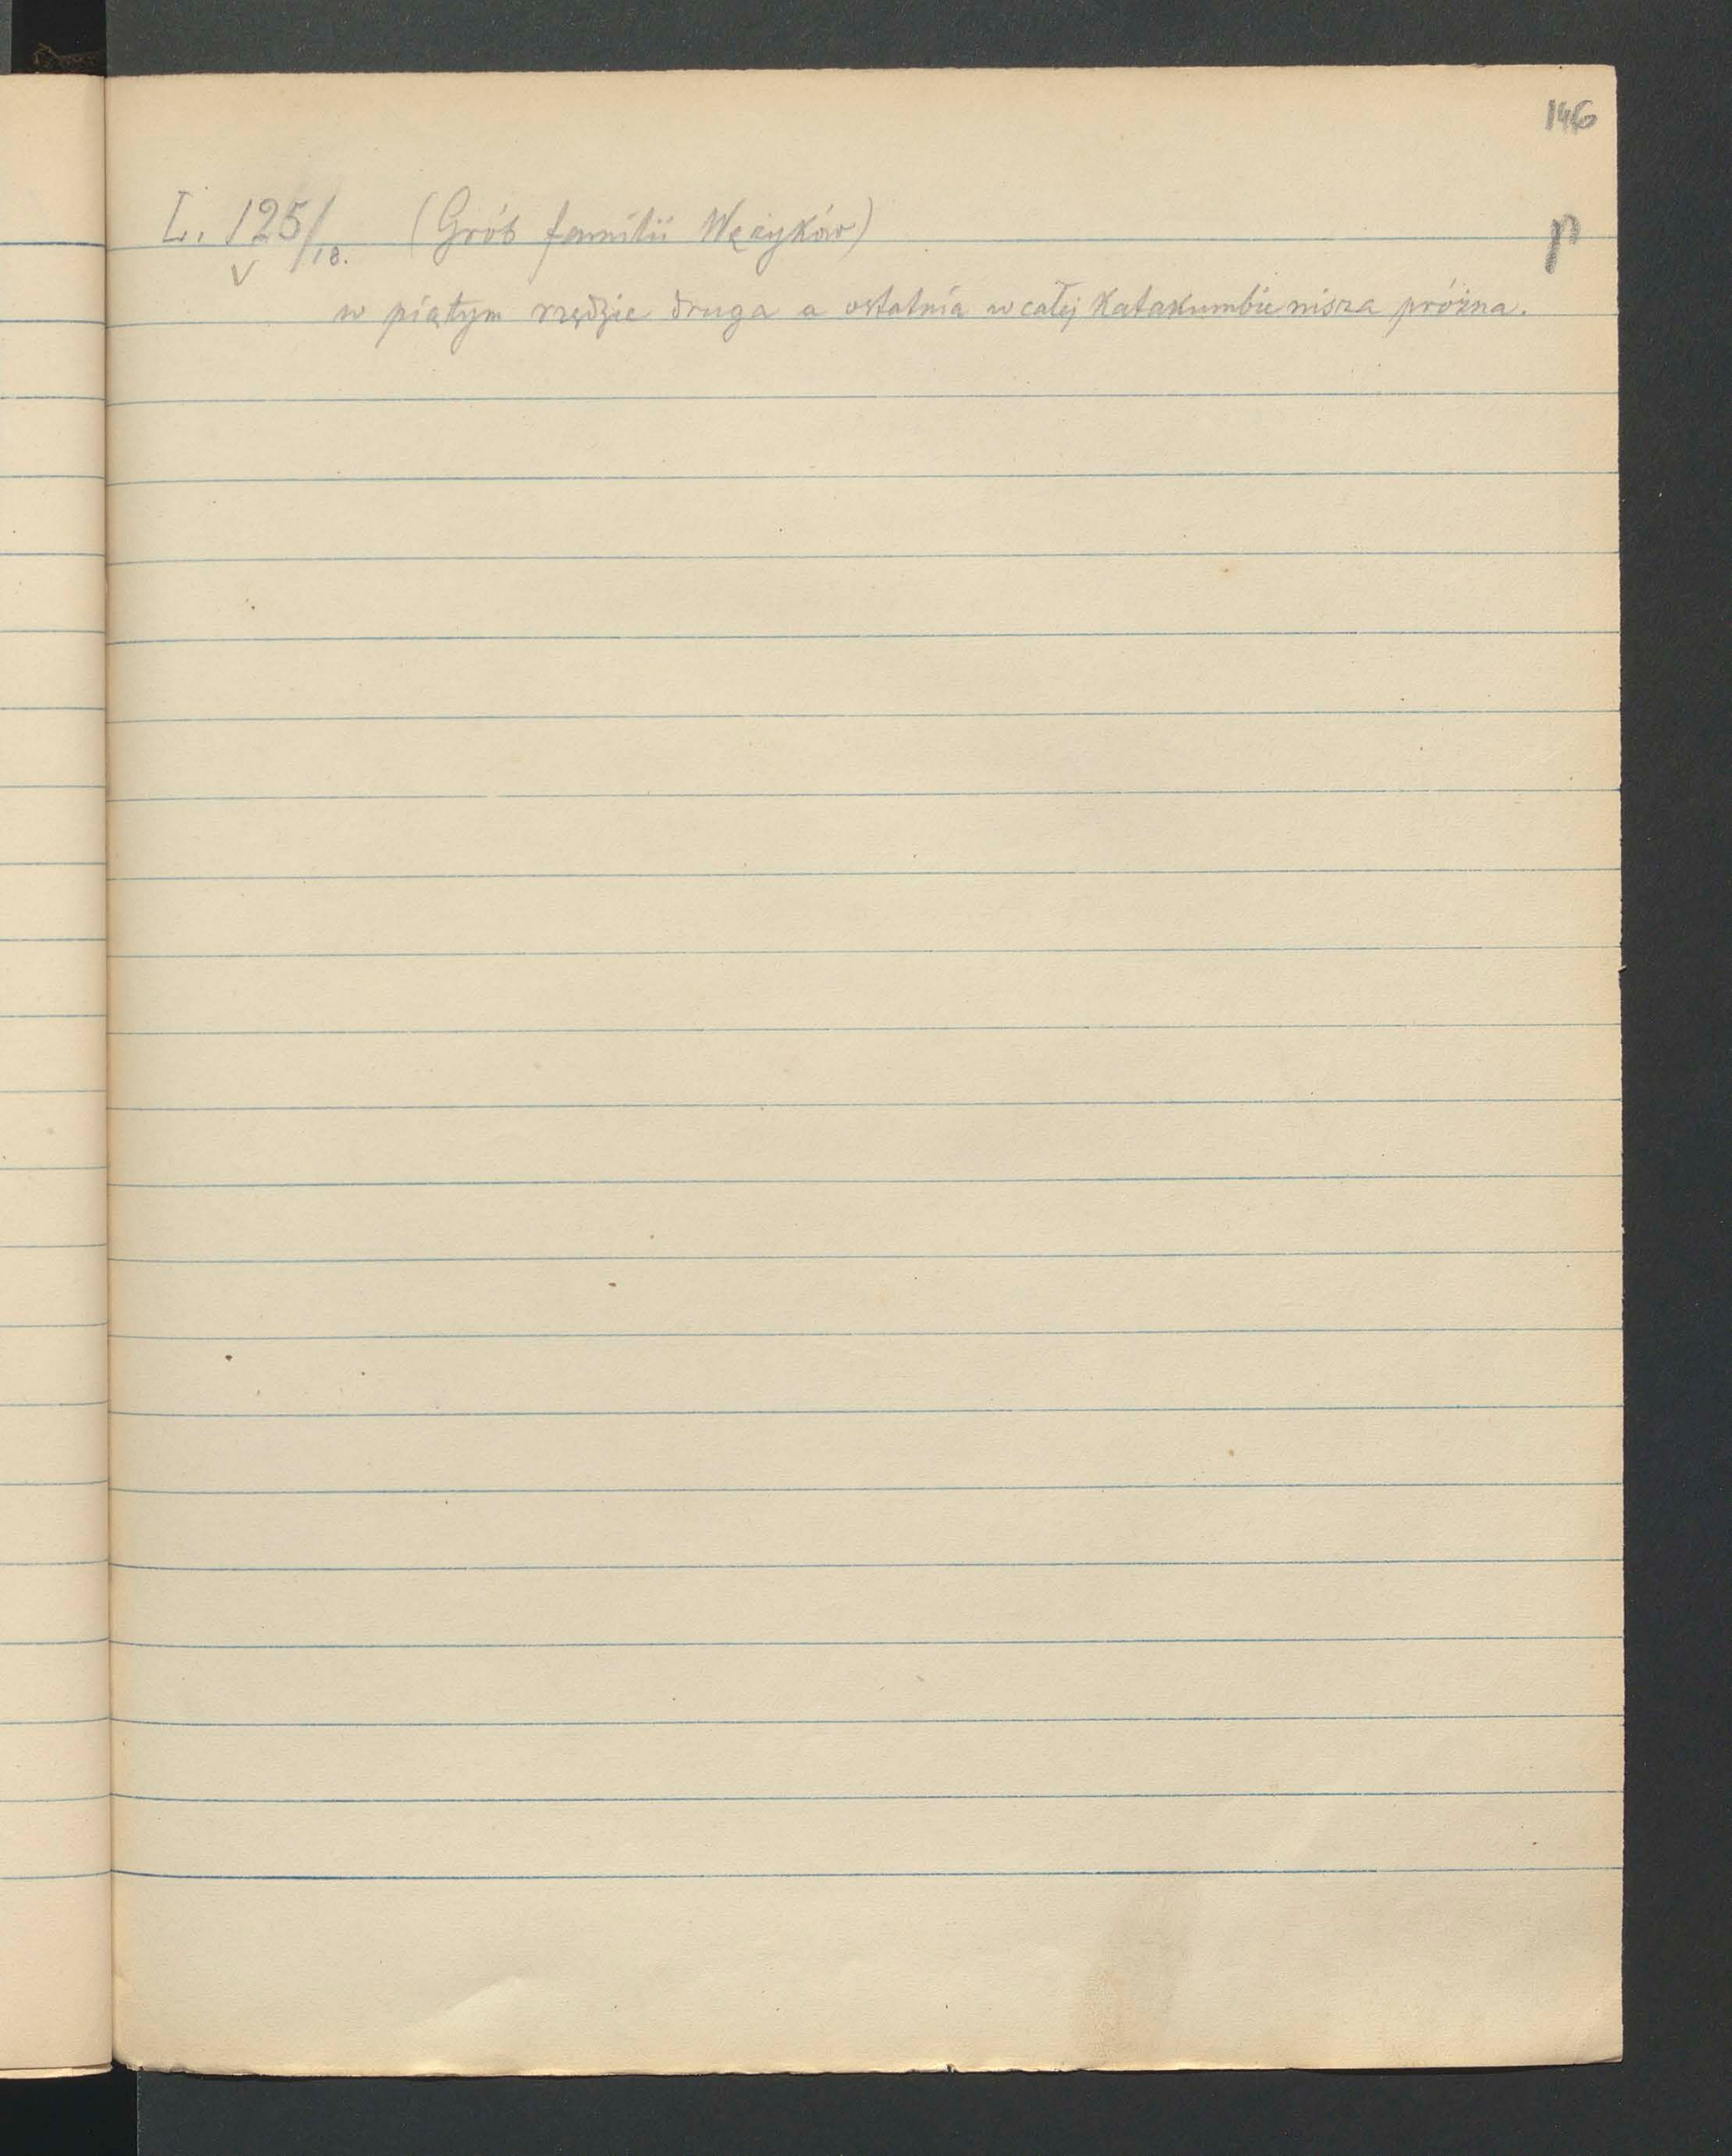 146
L. 125/18. (Grób familii Wężyków) p
v
w piątym rzędzie druga a ostatnia w całej Katakumbie nisza próżna.